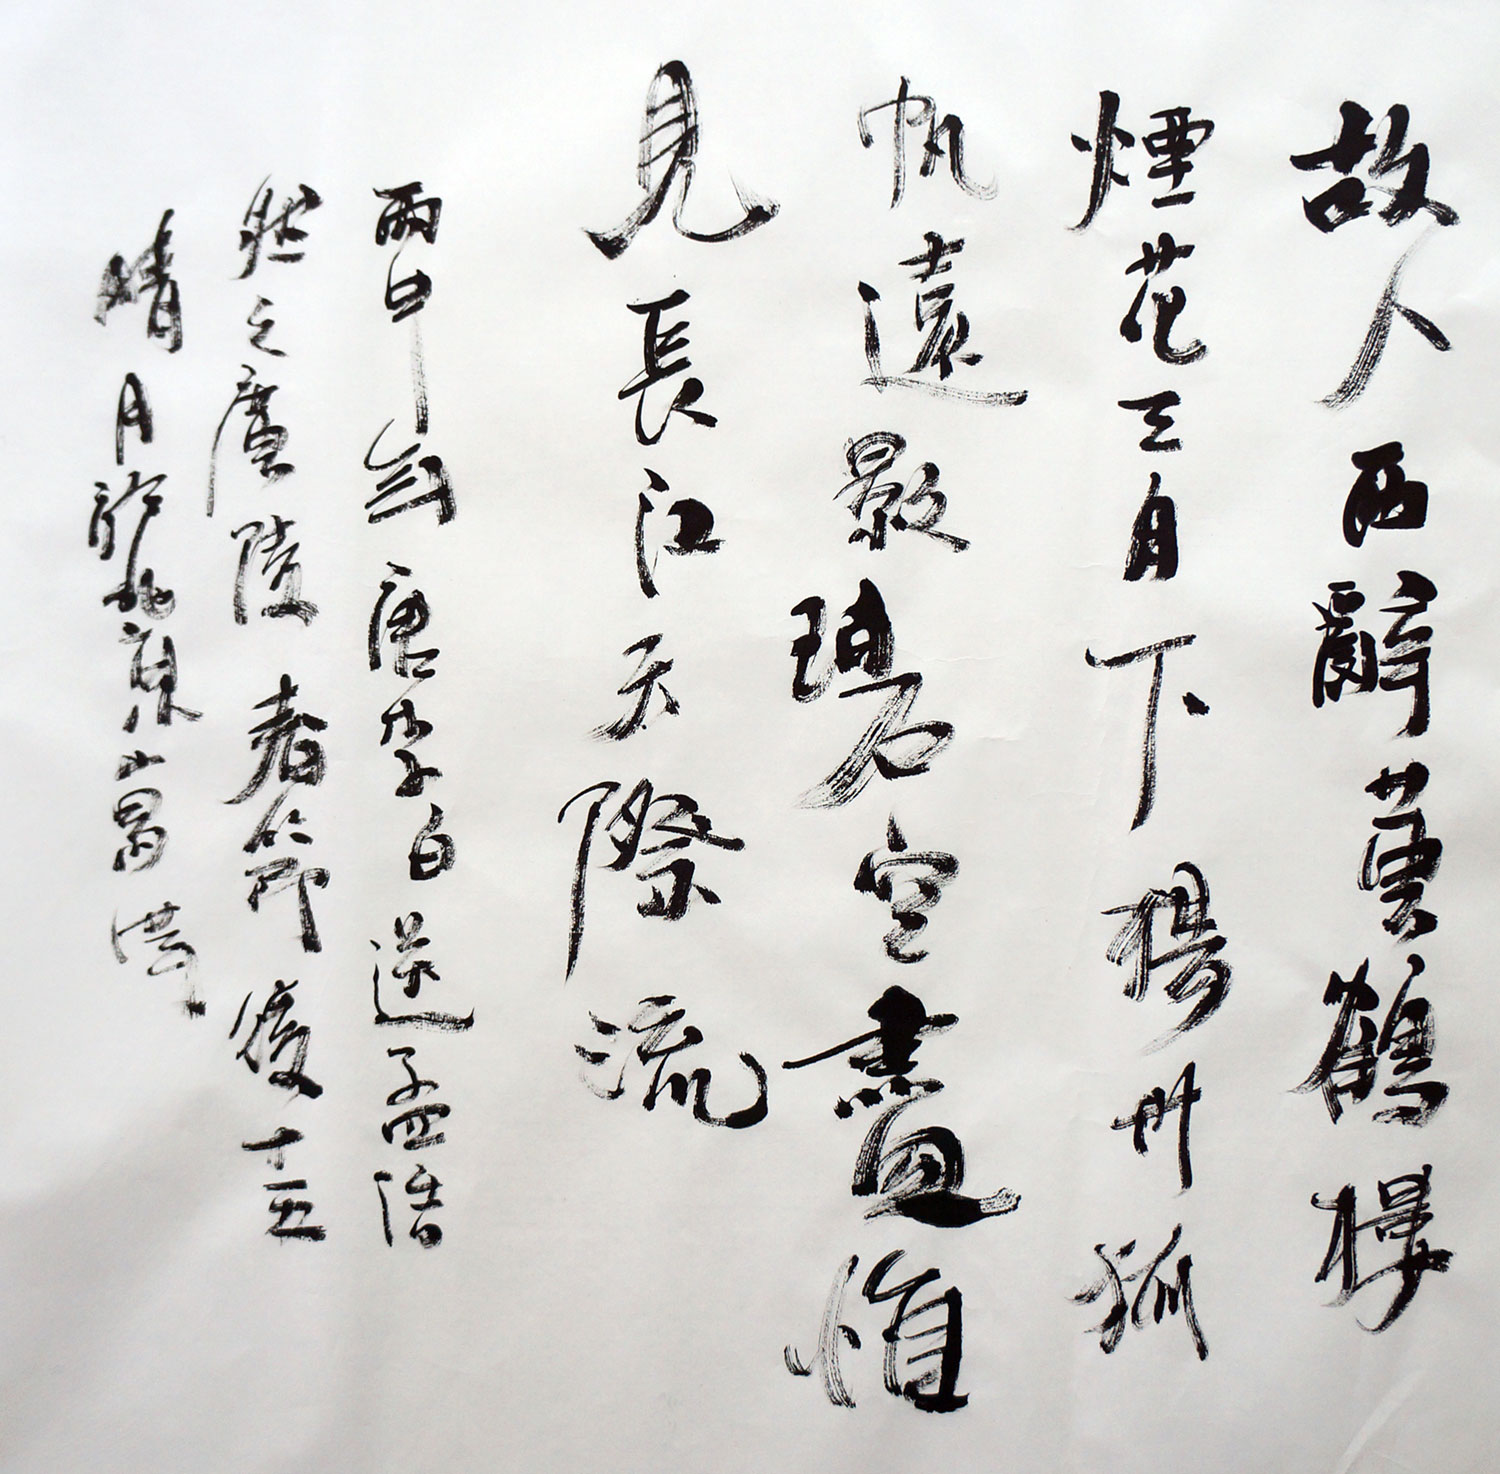 故人西辭黄鶴楼
煙花三月下揚州孤
帆遠影碧空盡惟
見長江天際流
丙申年唐李白送孟浩
然之廣陵春節後十五
晴月於北京